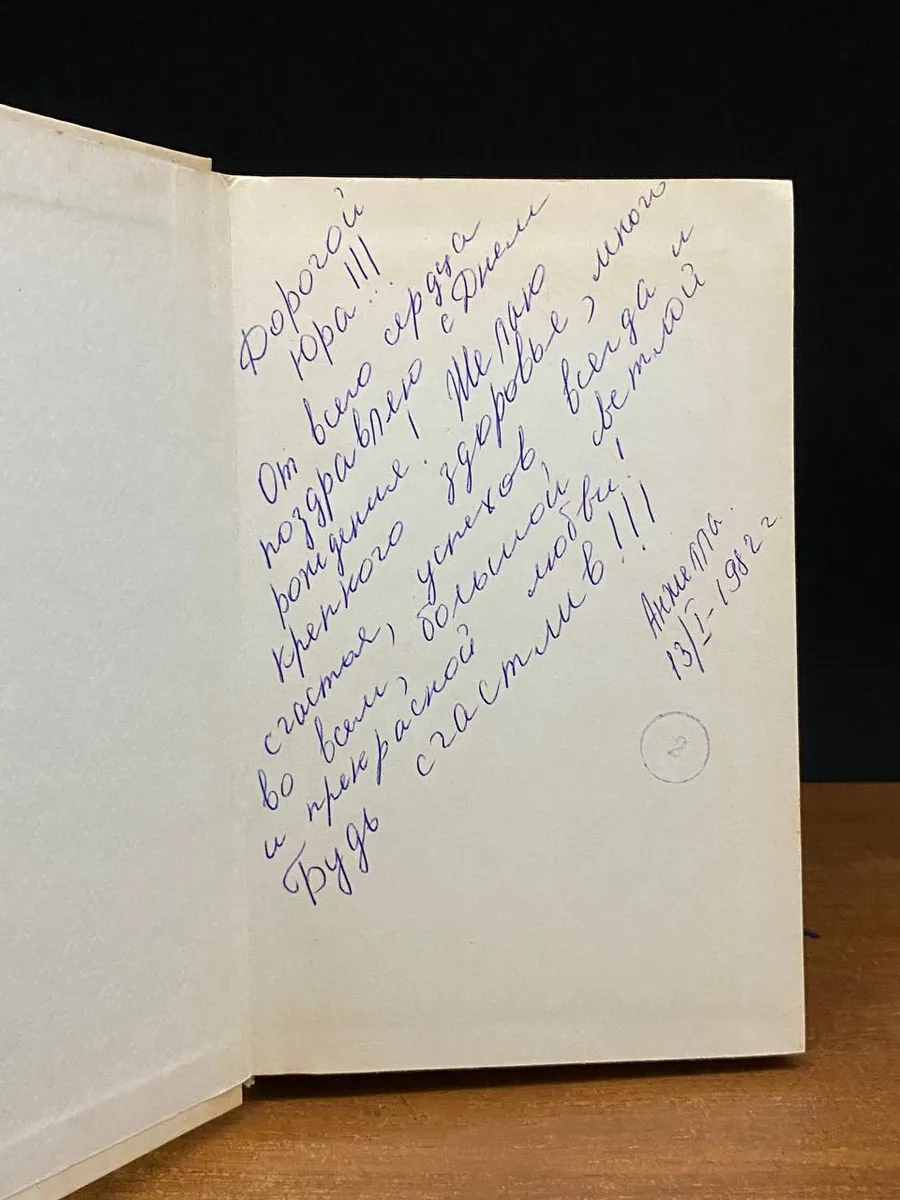 Дорогой
Юра!!!
От всего сердца
поздравляю с Днем
рождения! Желаю
крепкого здоровье, много
счастья, успехов всегда и
во всем, большой, светлой
и прекрасной любви!
Будь счастлив!!!
Анжелла.
13/I-1982 г.
2